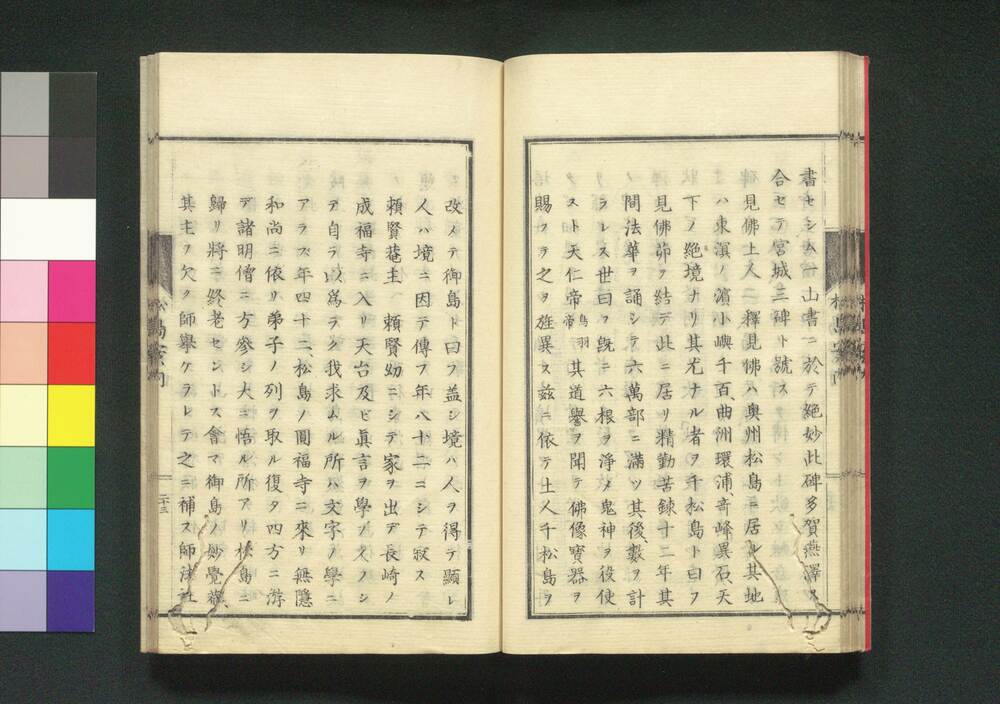 書セシム一山書ニ於テ絶妙此碑多賀燕澤ス
合セテ宮城三碑ト號ス
見佛上人 釋見佛ハ奥州松島ニ居ル其地
ハ東溟ノ濱小嶼千百、曲洲環浦、奇峰異石、天
下ノ絶境ナリ其尤ナル者ヲ千松島ト曰フ
見佛茆ヲ結デ此ニ居リ精勤苦錬十二年其
間法華ヲ誦シテ六萬部ニ滿ツ其後、數ヲ計
ラレス世曰フ既ニ六根ヲ淨メ鬼神ヲ役使
スト天仁帝鳥羽帝其道譽ヲ聞テ佛像寶器ヲ
賜フテ之ヲ旌異ス茲ニ依テ土人千松島ヲ
改メテ御島ト曰フ盖シ境ハ人ヲ得テ顯レ
人ハ境ニ因テ傳フ年八十二ニシテ寂ス
頼賢菴主 頼賢幼ニシテ家ヲ出デ長崎ノ
成福寺ニ入リ天台及ビ眞言ヲ學ブ久フシ
テ自ラ以爲ラク我求ムル所ハ文字ノ學ニ
アラズ年四十二、松島ノ圓福寺ニ來リ無隱
和尚ニ依リ弟子ノ列ヲ取ル復タ四方ニ游
デ諸明僧ニ方參シ大ニ悟ル所アリ松島ニ
歸リ將ニ終老セントス會マ御島ノ妙覺菴、
其主ヲ欠ク師擧ケラレテ之ニ補ス師法社
二十三